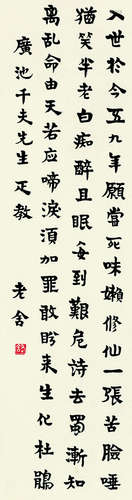 入世於今五九年願嘗死味嬾修仙一張苦臉唾
猶笑半老白痴醉且眠每到艱危詩去蜀漸知
离乱命由天若應啼淚須加罪敢盼来生化杜鵑
廣池千夫先生 正教
老舍